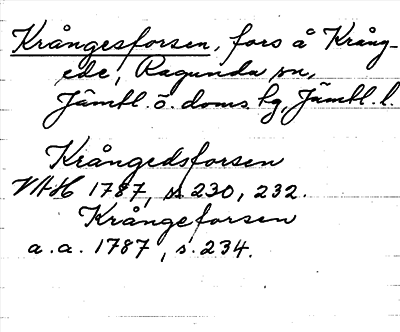 Krångesforsen, fors å Krång-
ede, Ragunda sn,
Jämtl. ö. doms. hg, Jämtl. l.
Krångedsforsen
VAH 1787, s. 230, 232.
Krångeforsen
a. a. 1787, s. 234.